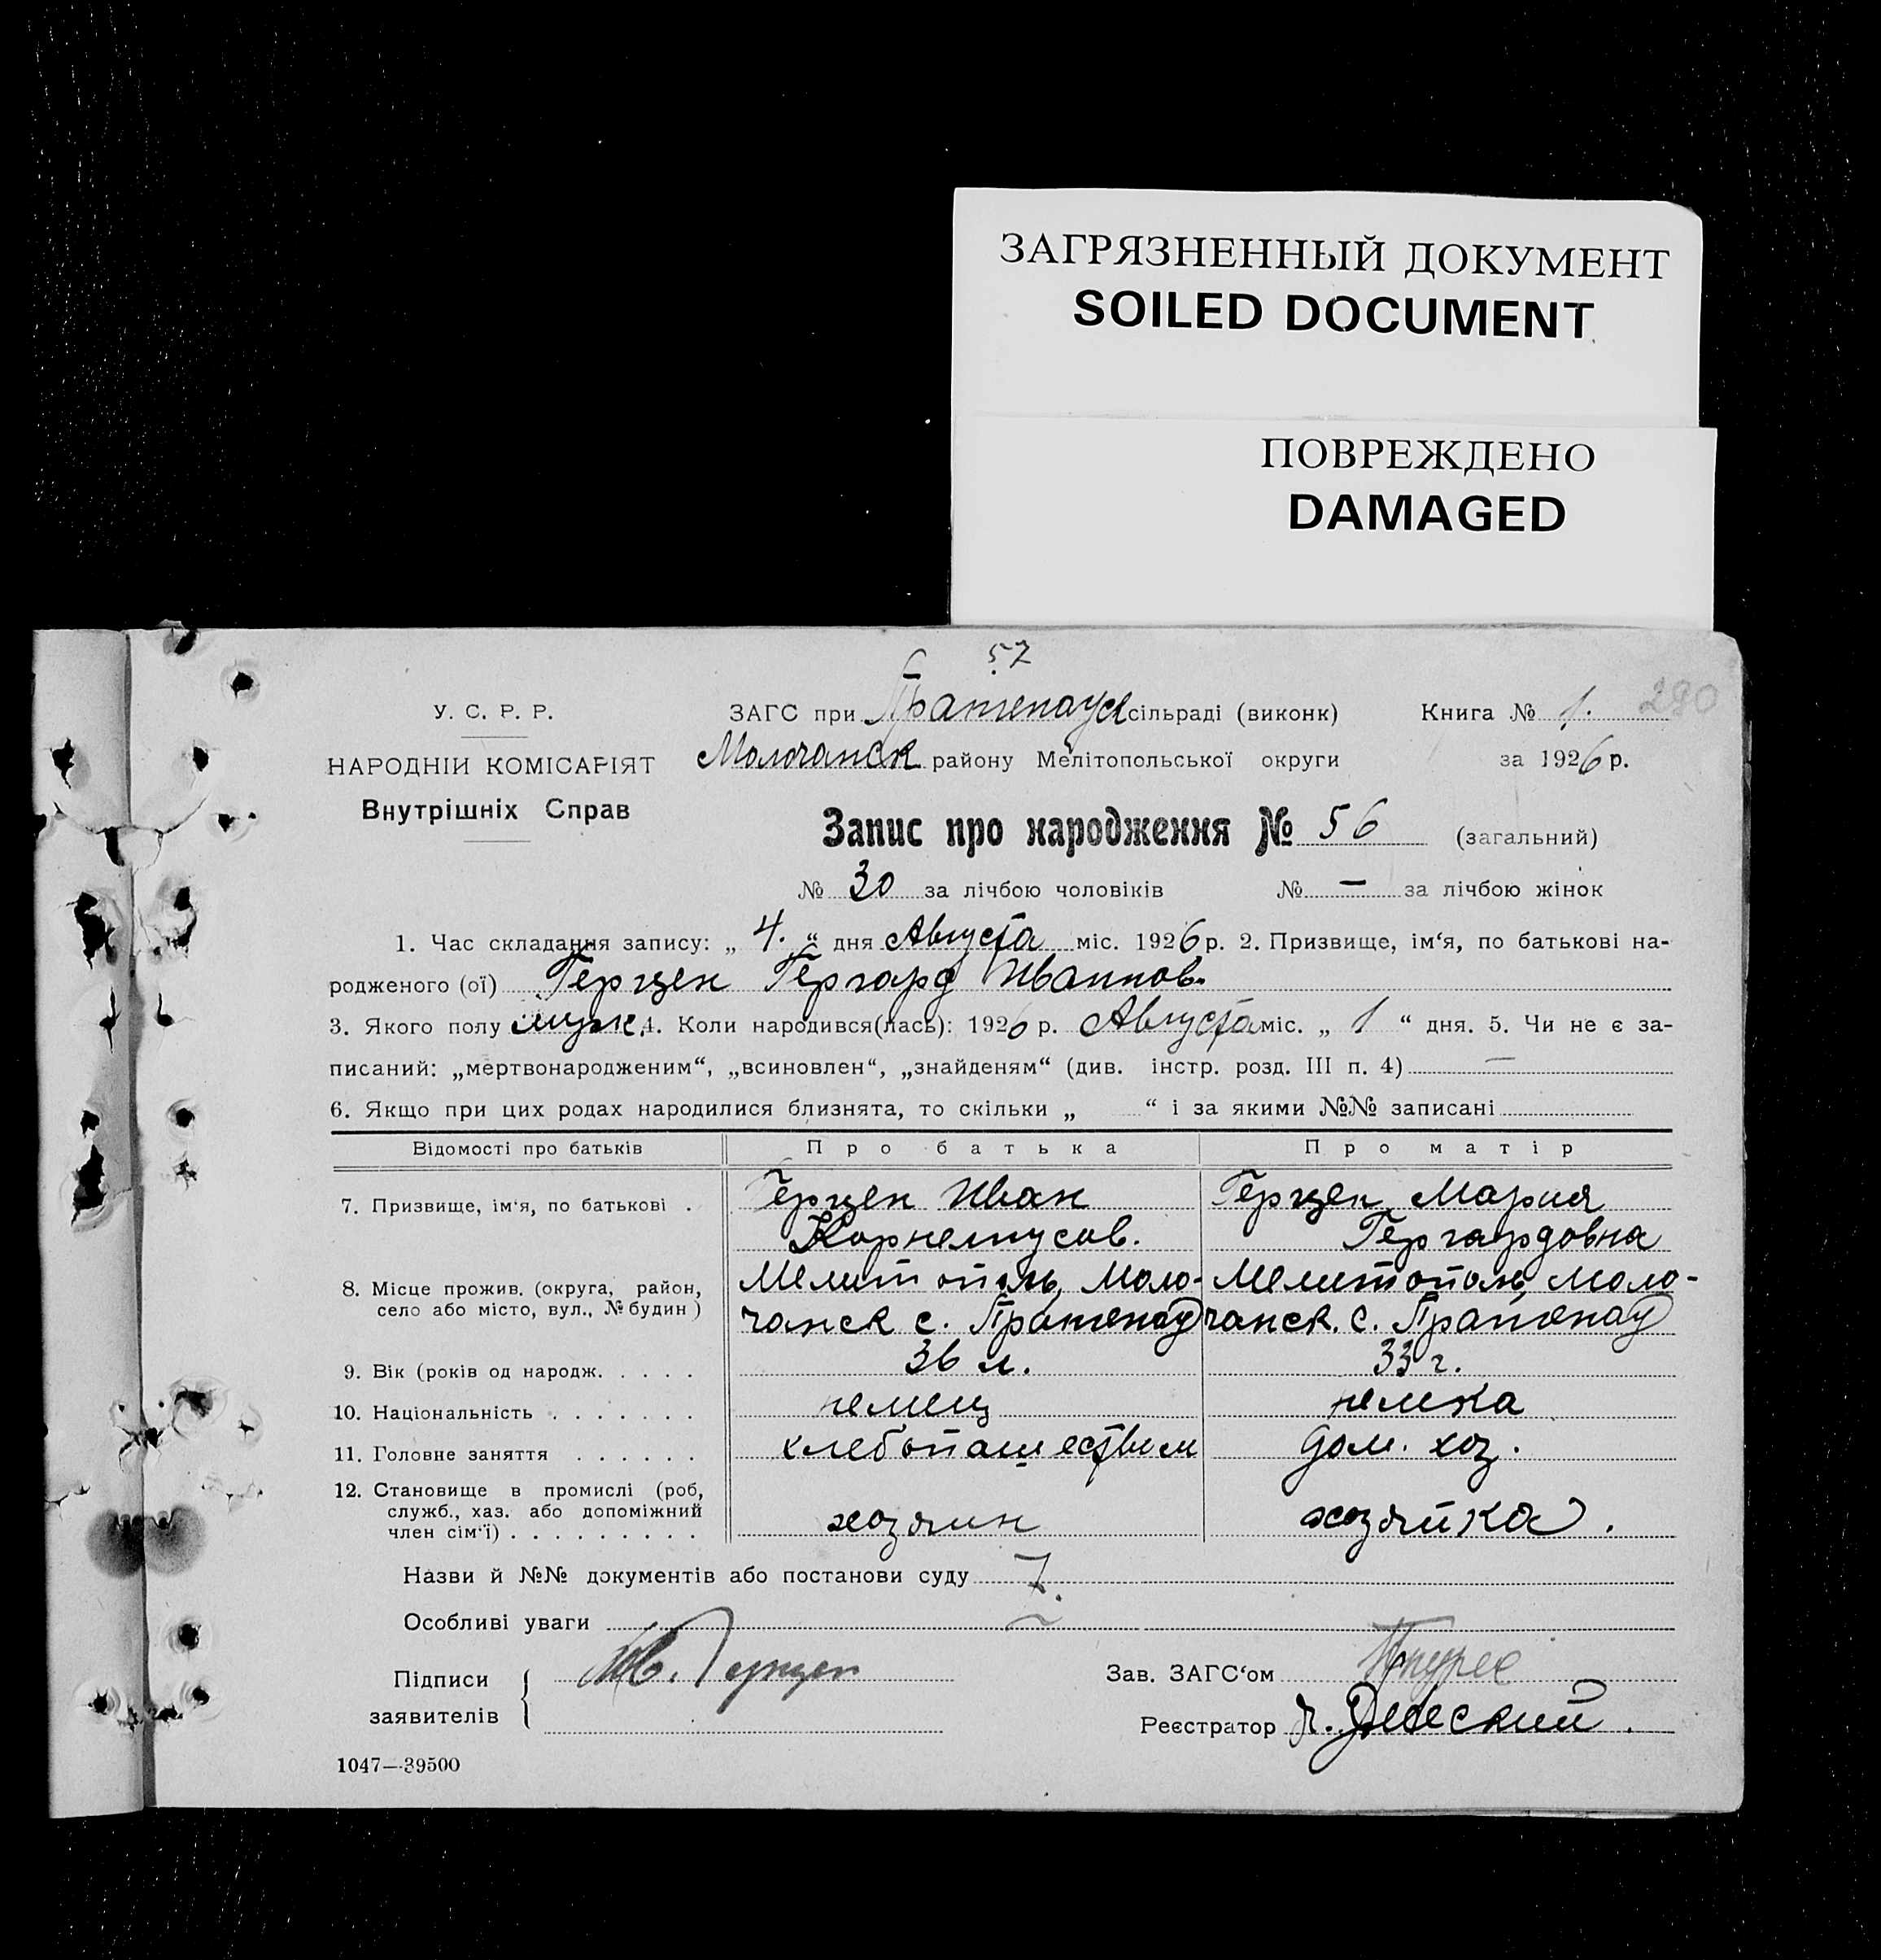 ЗАГРЯЗНЕННЫЙ ДОКУМЕНТ
SOILED DOCUMENT
ПОВРЕЖДЕНО
DAMAGED
57
290
У. С. Р. Р.
НАРОДНІЙ КОМІСАРІЯТ
Внутрішніх Справ
ЗАГС при Пратенауск сільраді (виконк)
Книга № 1.
Молочанск району Мелітопольської округи
за 1926 р.
Запис про народження № 56 (загальний)
№ 30 за лічбою чоловіків № — за лічбою жінок
1. Час складання запису: „ 4. “ дня Августа міс. 1926 р. 2. Призвище, ім‘я, по батькові на-
родженого (ої) Герцен Гергард Иваннов.
3. Якого полу муж. 4. Коли народився(лась): 1926 р. Августа міс. „ 1 “ дня. 5. Чи не є за-
писаний: „мертвонародженим“, „всиновлен“, „знайденям“ (див. інстр. розд. III п. 4) —
6. Якщо при цих родах народилися близнята, то скільки „ “ і за якими №№ записані
Відомості про батьків Про батька Про матір
7. Призвище, ім‘я, по батькові . Герцен Иван Герцен Мария
Корнелиусов. Гергардовна
8. Місце прожив. (округа, район, Мелитополь, Моло- Мелитополь, Моло-
село або місто, вул., № будин) чанск с. Пратенау чанск. с. Пратенау
9. Вік (років од народж. . . . . 36 л. 33 г.
10. Національність . . . . . . . немец немка
11. Головне заняття . . . . . . хлебопашеством дом. хоз.
12. Становище в промислі (роб,
служб., хаз. або допоміжний
член сім‘ї) . . . . . . . . . хозяин хозяйка.
Назви й №№ документів або постанови суду 7.
Особливі уваги ~
Підписи
заявителів
Ив. Герцен
Зав. ЗАГС‘ом
Реєстратор
1047—39500